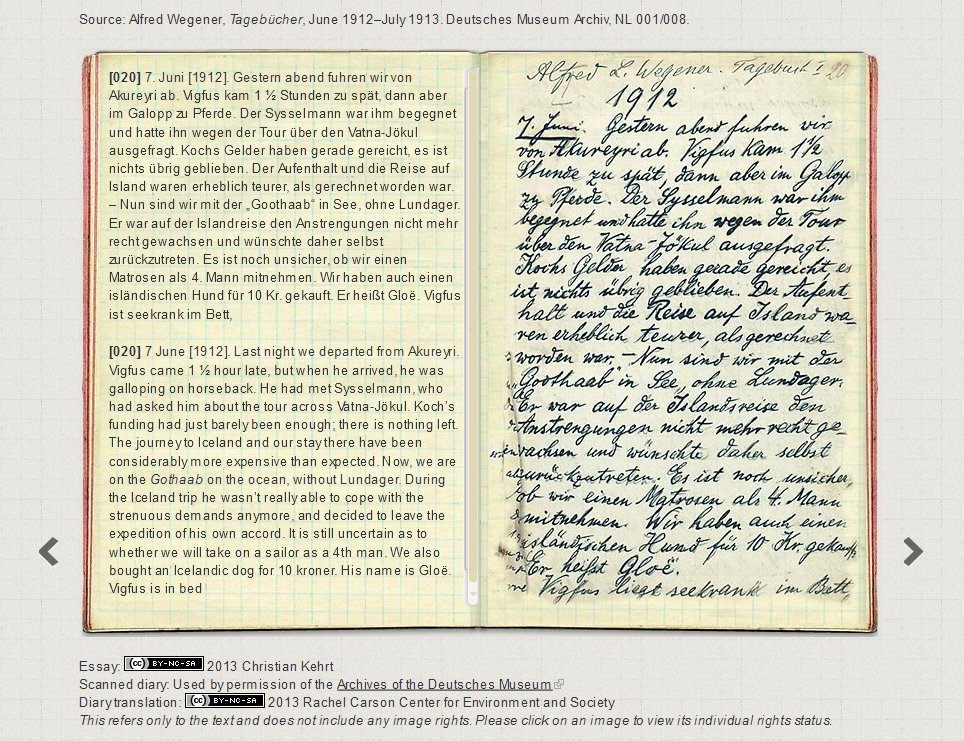 Source: Alfred Wegener, Tagebücher, June 1912–July 1913. Deutsches Museum Archiv, NL 001/008.
[020] 7. Juni [1912]. Gestern abend fuhren wir von
Akureyri ab. Vigfus kam 1 ½ Stunden zu spät, dann aber
im Galopp zu Pferde. Der Sysselmann war ihm begegnet
und hatte ihn wegen der Tour über den Vatna-Jökul
ausgefragt. Kochs Gelder haben gerade gereicht, es ist
nichts übrig geblieben. Der Aufenthalt und die Reise auf
Island waren erheblich teurer, als gerechnet worden war.
– Nun sind wir mit der „Goothaab“ in See, ohne Lundager.
Er war auf der Islandreise den Anstrengungen nicht mehr
recht gewachsen und wünschte daher selbst
zurückzutreten. Es ist noch unsicher, ob wir einen
Matrosen als 4. Mann mitnehmen. Wir haben auch einen
isländischen Hund für 10 Kr. gekauft. Er heißt Gloë. Vigfus
ist seekrank im Bett,
[020] 7 June [1912]. Last night we departed from Akureyri.
Vigfus came 1 ½ hour late, but when he arrived, he was
galloping on horseback. He had met Sysselmann, who
had asked him about the tour across Vatna-Jökul. Koch’s
funding had just barely been enough; there is nothing left.
The journey to Iceland and our stay there have been
considerably more expensive than expected. Now, we are
on the Gothaab on the ocean, without Lundager. During
the Iceland trip he wasn’t really able to cope with the
strenuous demands anymore, and decided to leave the
expedition of his own accord. It is still uncertain as to
whether we will take on a sailor as a 4th man. We also
bought an Icelandic dog for 10 kroner. His name is Gloë.
Vigfus is in bed
Alfred L. Wegener. Tagebuch I 20
1912
7. Juni. Gestern abend fuhren wir
von Akureyri ab. Vigfus kam 1 ½
Stunde zu spät, dann aber im Galopp
zu Pferde. Der Sysselmann war ihm
begegnet und hatte ihn wegen der Tour
über den Vatna-Jökul ausgefragt.
Kochs Gelder haben gerade gereicht, es
ist nichts übrig geblieben. Der Aufent-
halt und die Reise auf Island wa-
ren erheblich teurer, als gerechnet
worden war. – Nun sind wir mit der
„Goothaab“ in See, ohne Lundager.
Er war auf der Islandsreise den
Anstrengungen nicht mehr recht ge-
wachsen und wünschte daher selbst
zurückzutreten. Es ist noch unsicher,
ob wir einen Matrosen als 4. Mann
mitnehmen. Wir haben auch einen
isländischen Hund für 10 Kr. gekauft.
Er heißt Gloë.
Vigfus liegt seekrank im Bett,
Essay: (cc) BY-NC-SA 2013 Christian Kehrt
Scanned diary: Used by permission of the Archives of the Deutsches Museum
Diary translation: (cc) BY-NC-SA 2013 Rachel Carson Center for Environment and Society
This refers only to the text and does not include any image rights. Please click on an image to view its individual rights status.